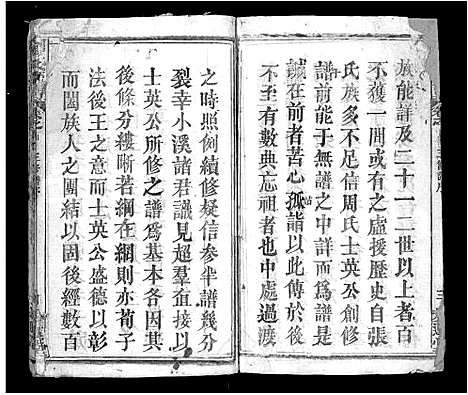 族能詳及二十一二世以上者百
不獲一間或有之虛援歷史自張
氏族多不足信周氏士英公創修
譜前能于無譜之中詳而為譜是
誠在前者苦心孤詣以傳於後
不至有數典忘祖者也中處過渡
之時照例續修疑信參半譜幾分
裂幸小溪諸君議見超羣直接以
士英公所修之譜爲基本各因其
後條分縷晰若綱在綱則亦荀子
法後王之意也士英公盛德以彰
而闔族人之團結以固後經數百